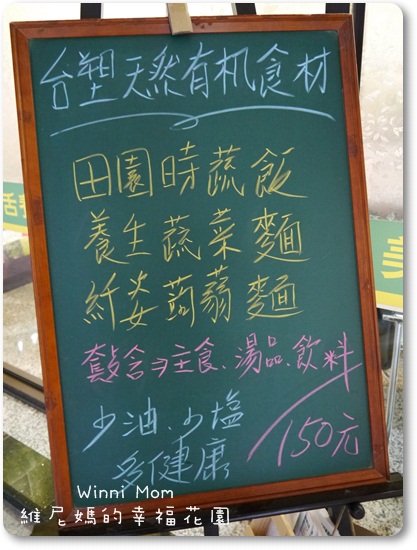 台塑天然有机食材
田園時蔬飯
養生蔬菜麵
纤姿蒟蒻麵
套餐含⇒主食、湯品、飲料
少油、少塩
多健康
150元
Winni Mom
維尼媽的幸福花園